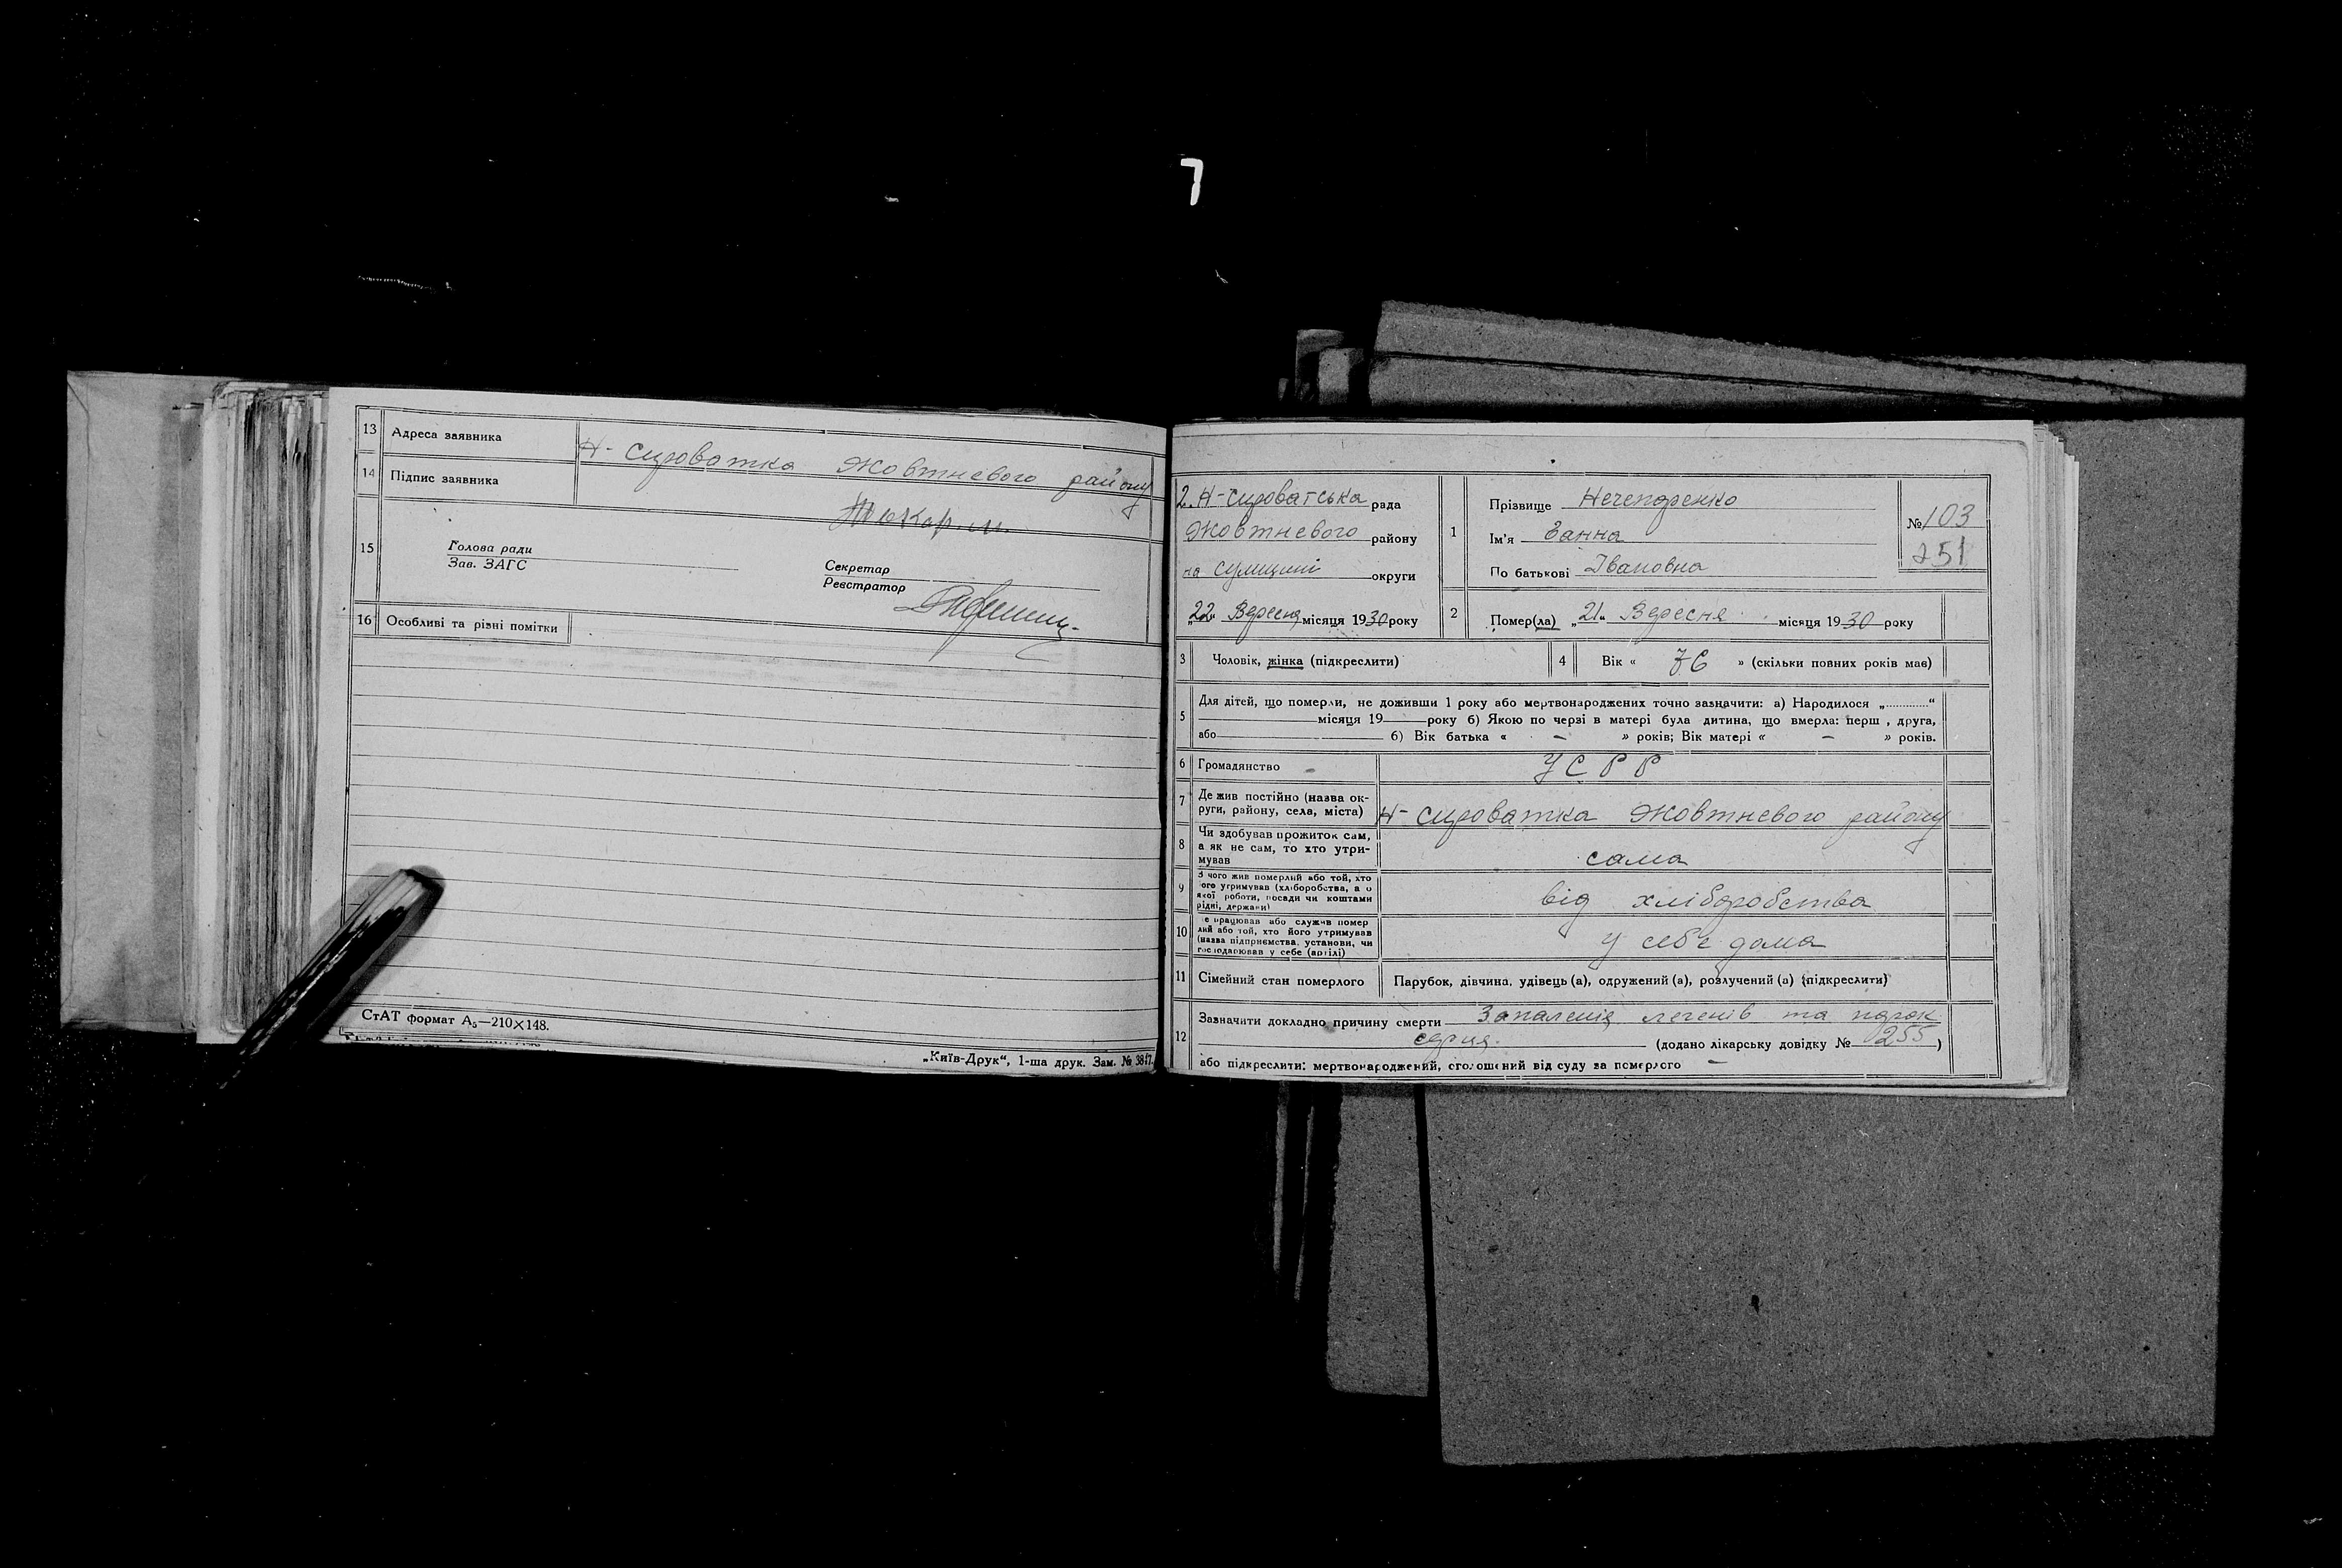 7
13 Адреса заявника Н- Сироватка Жовтневого району
14 Підпис заявника Токар. М.
15 Голова ради
Зав. ЗАГС
Секретар
Реєстратор
16 Особливі та різні помітки
СтАТ формат А5—210×148.
„Київ-Друк“, 1-ша друк. Зам. № 3847.
2. Н-Сироватська рада
Жовтневого району
на Сумщині округи
„22“ Вересня місяця 1930 року
1 Прізвище Нечепоренко
Ім'я Ганна
По батькові Івановна
№ 103
251
2 Помер(ла) „21“ Вересня місяця 1930 року
3 Чоловік, жінка (підкреслити)
4 Вік « 76 » (скільки повних років має)
5 Для дітей, що померли, не доживши 1 року або мертвонароджених точно зазначити: а) Народилося „............“
місяця 19 року б) Якою по черзі в матері була дитина, що вмерла: перш , друга,
або б) Вік батька « - » років; Вік матері « - » років.
6 Громадянство УСРР
7 Де жив постійно (назва ок-
руги, району, села, міста) Н- Сироватка Жовтневого району
8 Чи здобував прожиток сам,
а як не сам, то хто утри-
мував сама
9 З чого жив померлий або той, хто
ого утримував (хліборобства, а о
якої роботи, посади чи коштами
рідні, держави) від хліборобства
10 е працював або служив помер
лий або той, хто його утримував
(назва підприємства, установи, чи
господарював у себе (артілі) у себе дома
11 Сімейний стан померлого Парубок, дівчина, удівець (а), одружений (а), розлучений (а) (підкреслити)
12 Зазначити докладно причину смерти Запаленія легенів та порок
серця. (додано лікарську довідку № 255)
або підкреслити: мертвонароджений, оголошений від суду за померлого -